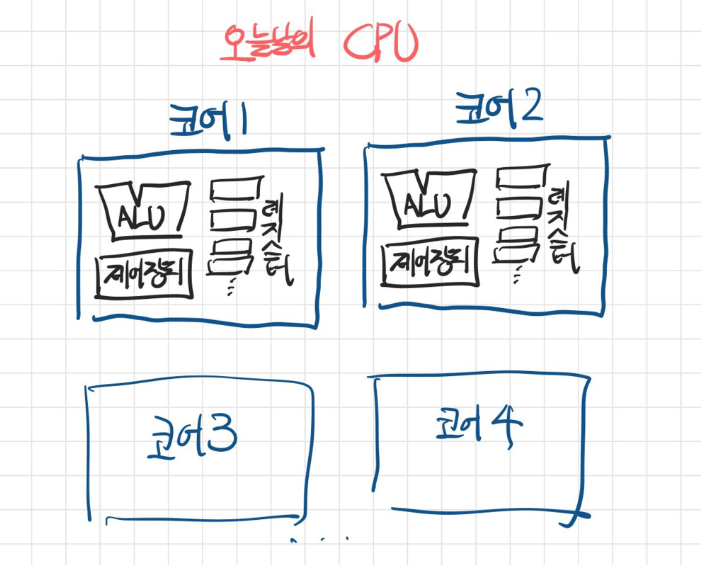 오늘날의 CPU
코어1
코어2
ALU
제어장치
레지스터
ALU
제어장치
레지스터
코어3
코어4